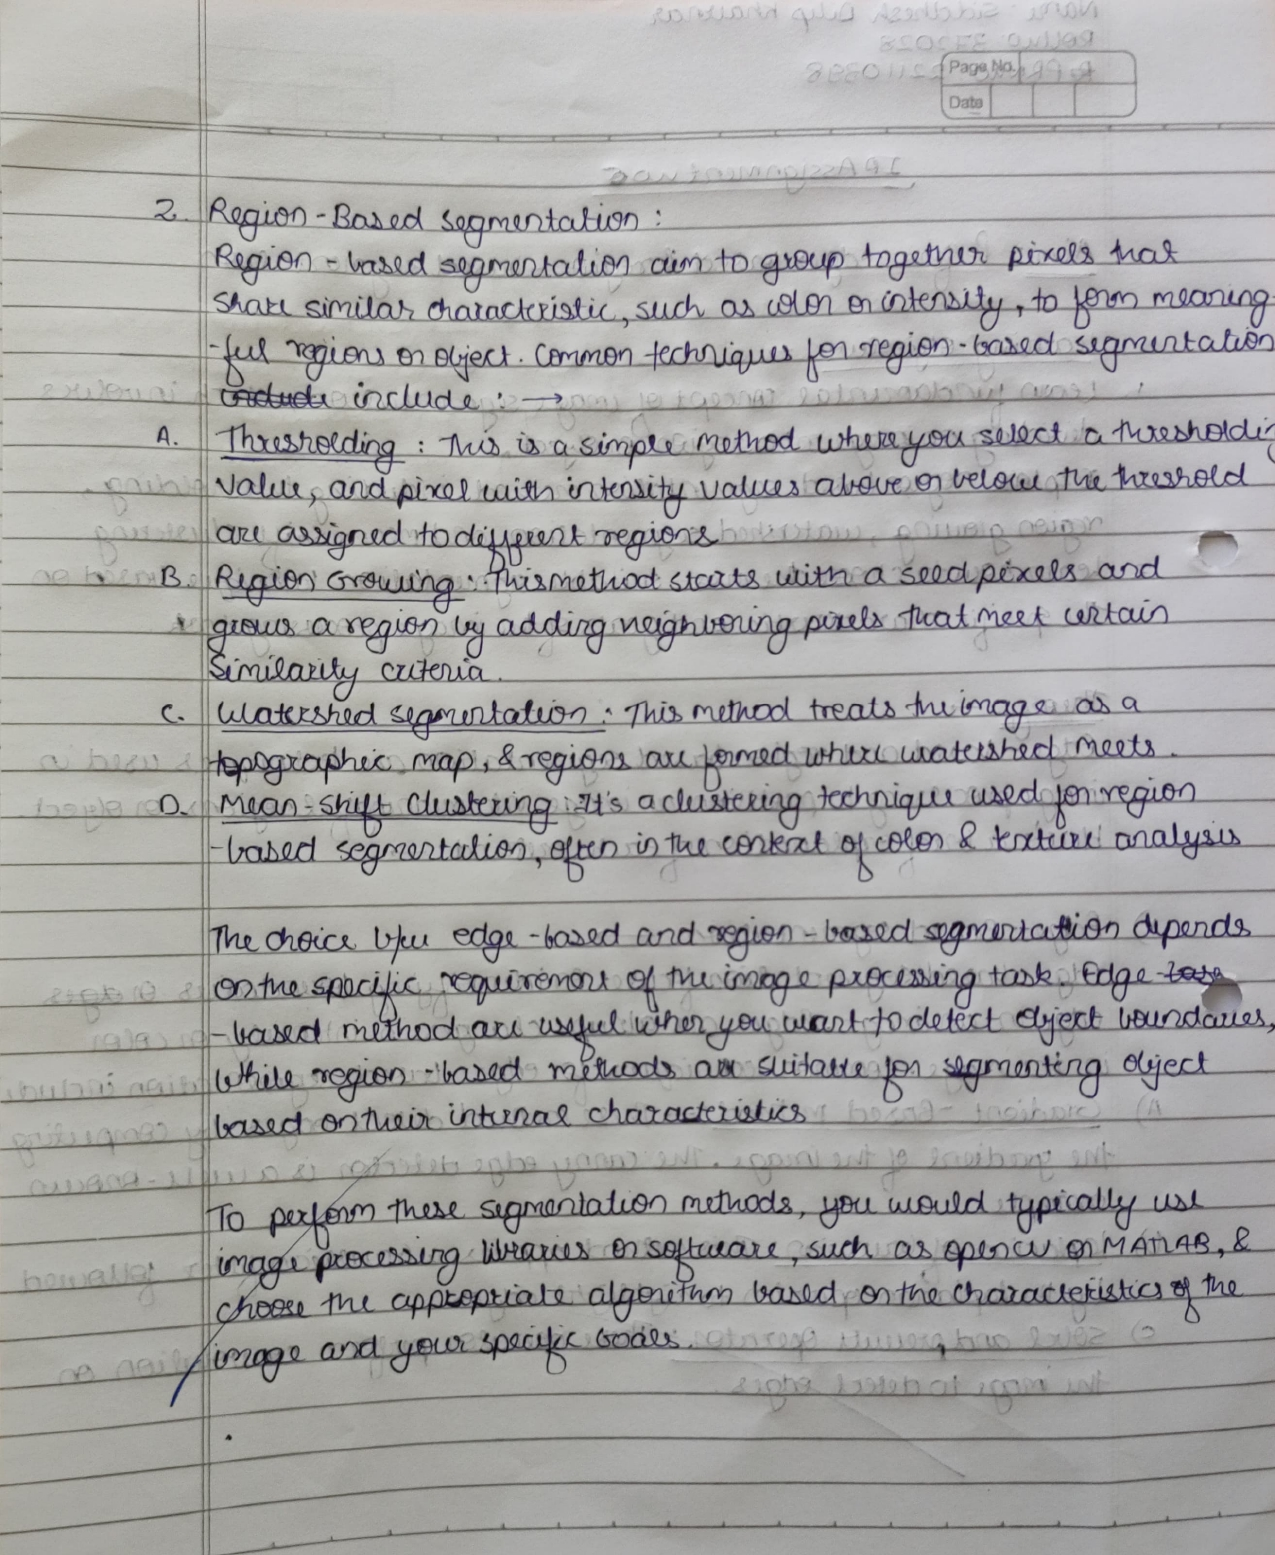 Page No.
Date
2. Region-Based segmentation :
Region-based segmentation aim to group together pixels that
share similar characteristic, such as color or intensity, to form meaning
-ful regions or object. Common techniques for region-based segmentation
include include : →
A. Thresholding : This is a simple method where you select a thresholdi
value, and pixel with intensity values above or below the threshold
are assigned to different regions
B. Region Growing : This method starts with a seed pixels and
grows a region by adding neighboring pixels that meet certain
Similarity criteria.
C. Watershed segmentation : This method treats the image as a
topographic map, & regions are formed where watershed meets.
D. Mean-shift Clustering : It's a clustering technique used for region
-based segmentation, often in the context of color & texture analysis
The choice b/w edge-based and region-based segmentation depends
on the specific requirement of the image processing task. Edge base
-based method are useful when you want to detect object boundaries,
while region-based methods are suitable for segmenting object
based on their internal characteristics
To perform these segmentation methods, you would typically use
image processing libraries or software, such as opencv or MATLAB, &
choose the appropriate algorithm based on the characteristics of the
image and your specific Goals.